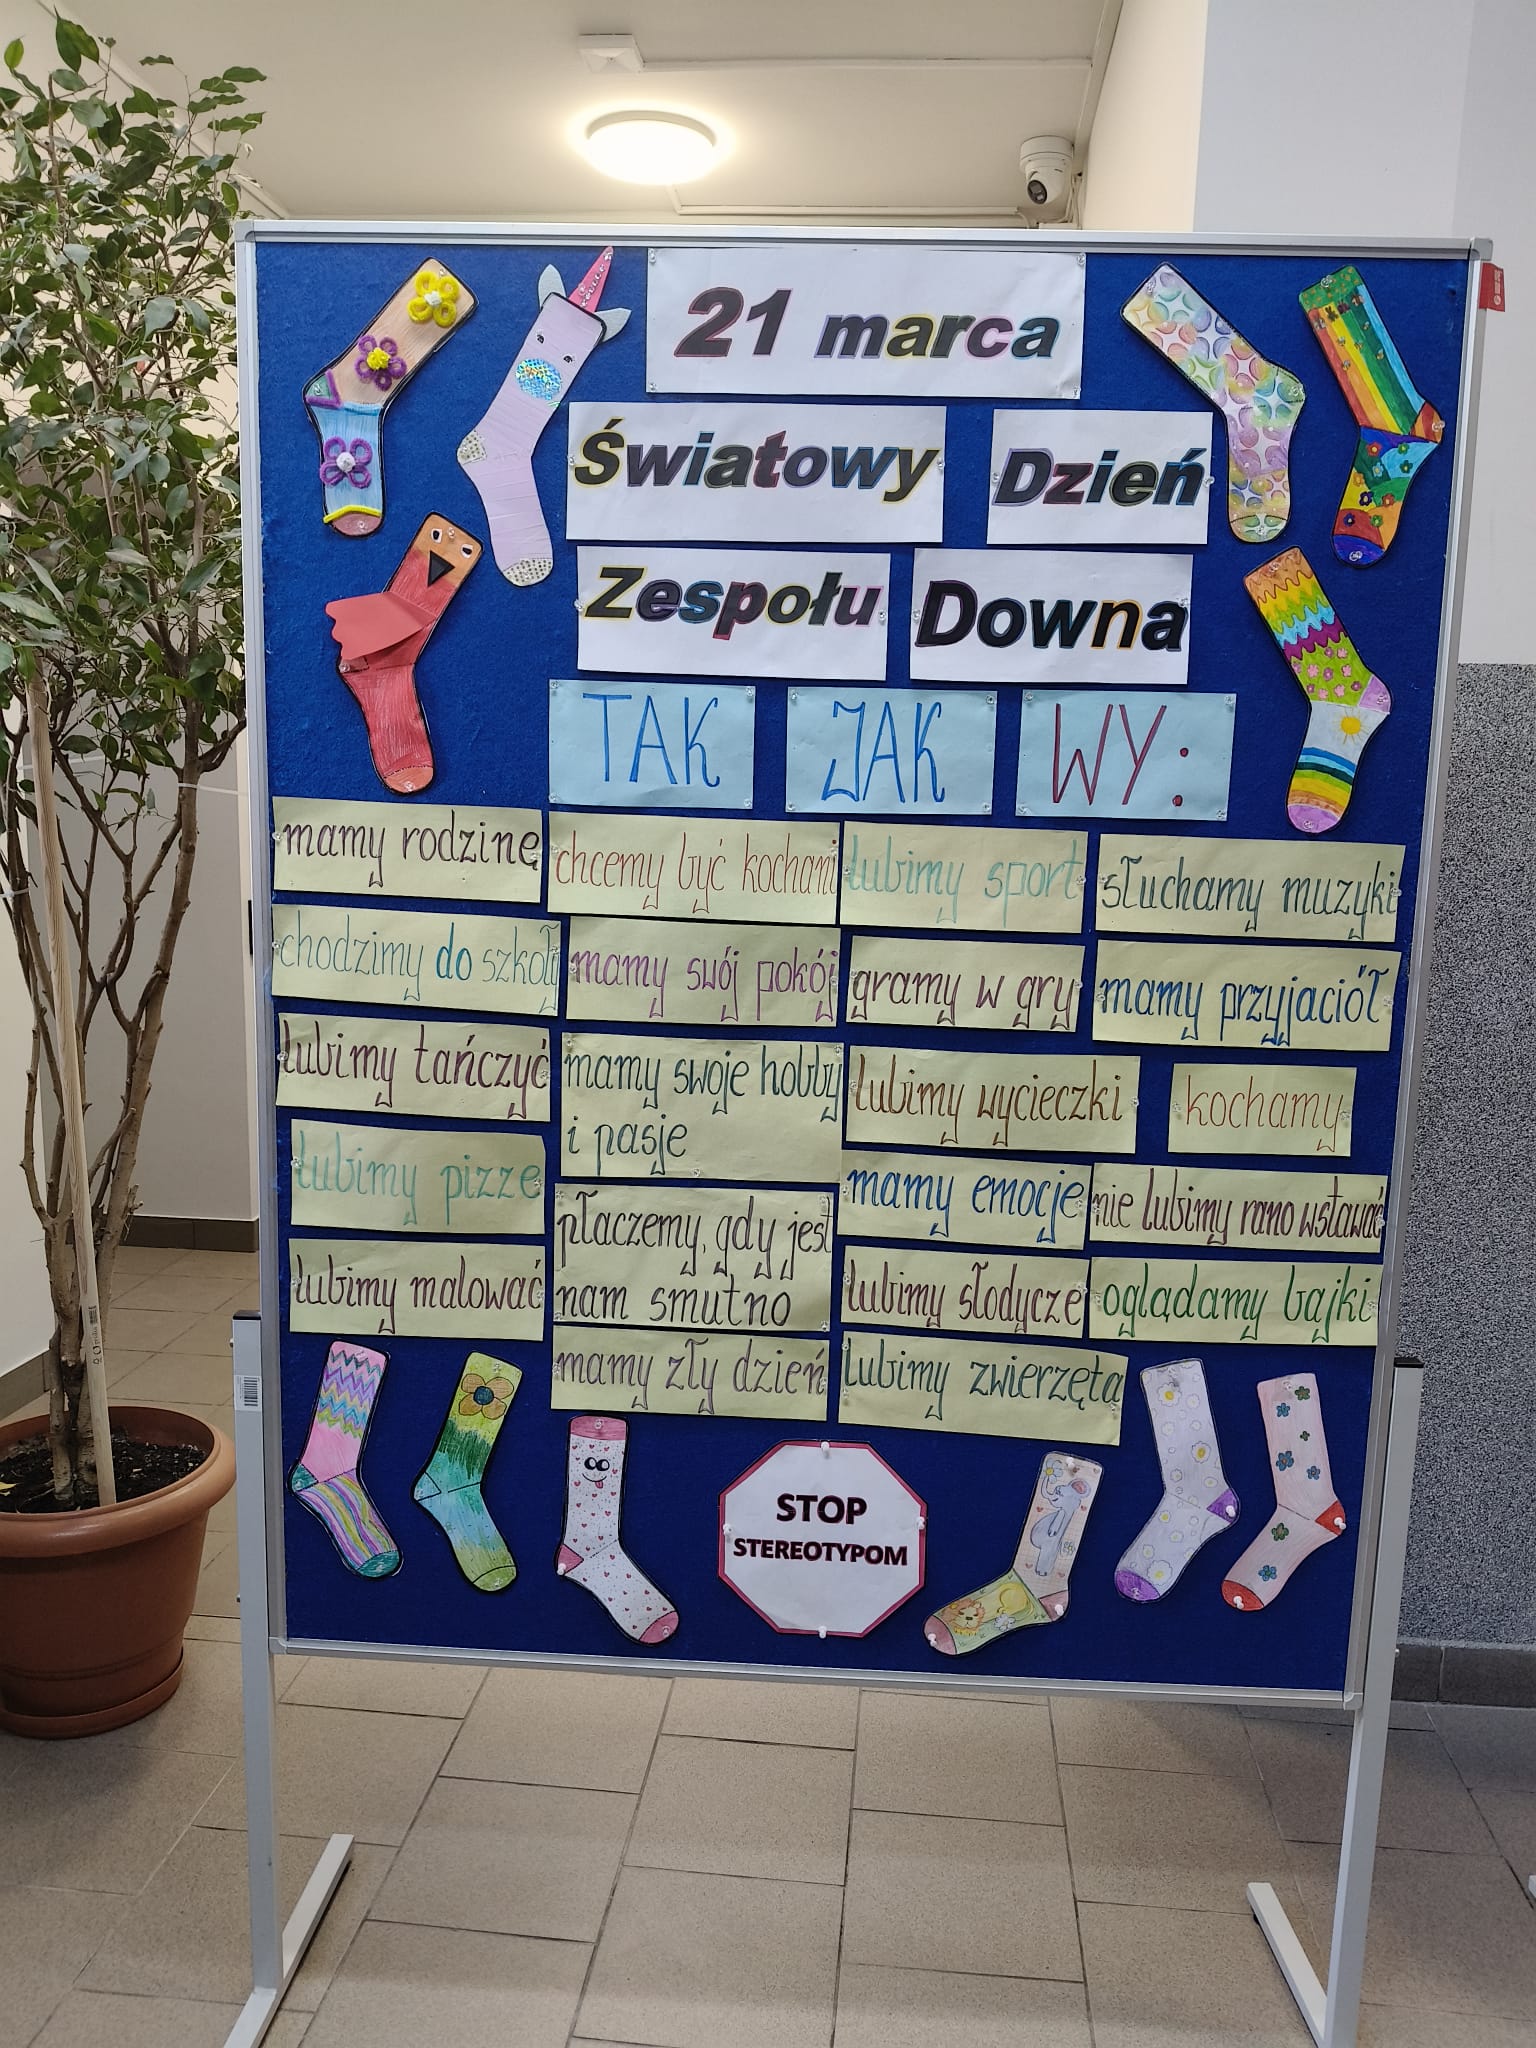 21 marca
Światowy Dzień
Zespołu Downa
TAK JAK WY:
mamy rodzinę
chcemy być kochani
lubimy sport
słuchamy muzyki
chodzimy do szkoły
mamy swój pokój
gramy w gry
mamy przyjaciół
lubimy tańczyć
mamy swoje hobby
i pasje
lubimy wycieczki
kochamy
lubimy pizze
płaczemy, gdy jest
nam smutno
mamy emocje
nie lubimy rano wstawać
lubimy malować
mamy zły dzień
lubimy słodycze
oglądamy bajki
lubimy zwierzęta
STOP
STEREOTYPOM